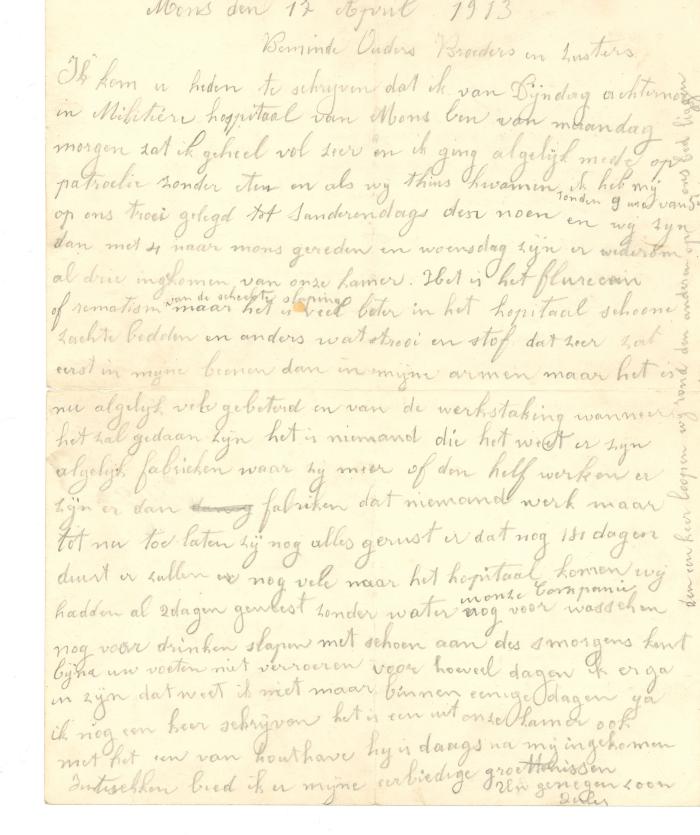 Mons den 17 April 1913
Beminde Ouders Broeders en Zusters
Ik kom u heden te schrijven dat ik van Dijndag achternoen
in Militiére hospitaal van Mons ben van maandag
morgen zat ik geheel vol zeer en ik ging algelijk mede op
patroelie zonder eten en als wy thuis kwamen ik heb mij
tonden 9 ure van s
op ons trooi gelegd tot sanderendags den noen en wij zyn
dan met 4 naar mons gereden en woensdag zijn er wederom
al drie ingekomen van onze kamer. Het is het flurecin
of rematism van de scheegte slaping
maar het is veel beter in het hopitaal schoone
zachte bedden en anders wat strooi en stof dat zeer zat
eerst in mijne beenen dan in mijne armen maar het is
nu algelijk vele gebeterd en van de werkstaking wanneer
het zal gedaan zijn het is niemand die het weet er zyn
algelijk fabrieken waar zij meer of den helf werken er
zijn er dan fabriken dat niemand werk maar
tot nu toe laten zij nog alles gerust er dat nog 10 dagen
duurt er zullen er nog vele naar het hopitaal komen wij
hadden al 2dagen geweest zonder water in onze Companie
nog voor wasschen
nog voor drinken slapen met schoen aan des smorgens kent
bijna uw voeten niet verroeren voor hoeveel dagen ik er ga
in zijn dat weet ik niet maar binnen eenige dagen ga
ik nog een keer schrijven het is een uit onze kamer ook
met het een van houthave hy is daags na mij ingekomen
Intusschen bied ik er mijne eerbiedige groetenissen
Uw genegen zoon
Jules
den een keer loopen wy rond den anderen op ons bed liggen